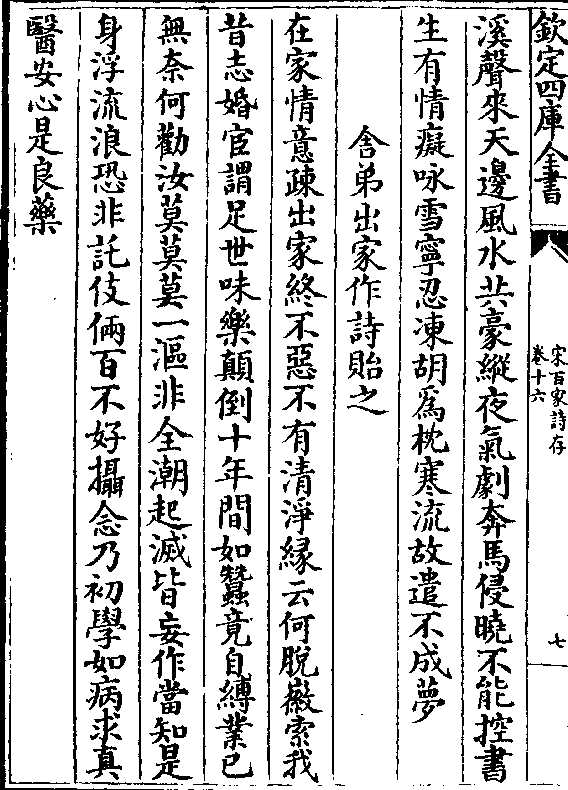 欽定四庫全書
宋百家詩存
卷十六
七
溪聲來天邊風水共豪縱夜氣劇奔馬侵曉不能控書
生有情癡咏雪寧忍凍胡爲枕寒流故遣不成夢
舎弟出家作詩貽之
在家情意疎出家終不惡不有清淨縁云何脱巌索我
昔志婚宦謂足世味樂顛倒十年間如蠶竟自縛業已
無奈何勸汝莫莫莫一漚非全潮起滅皆妄作當知是
身浮流浪恐非託伎倆百不好攝念乃初學如病求真
醫安心是良藥